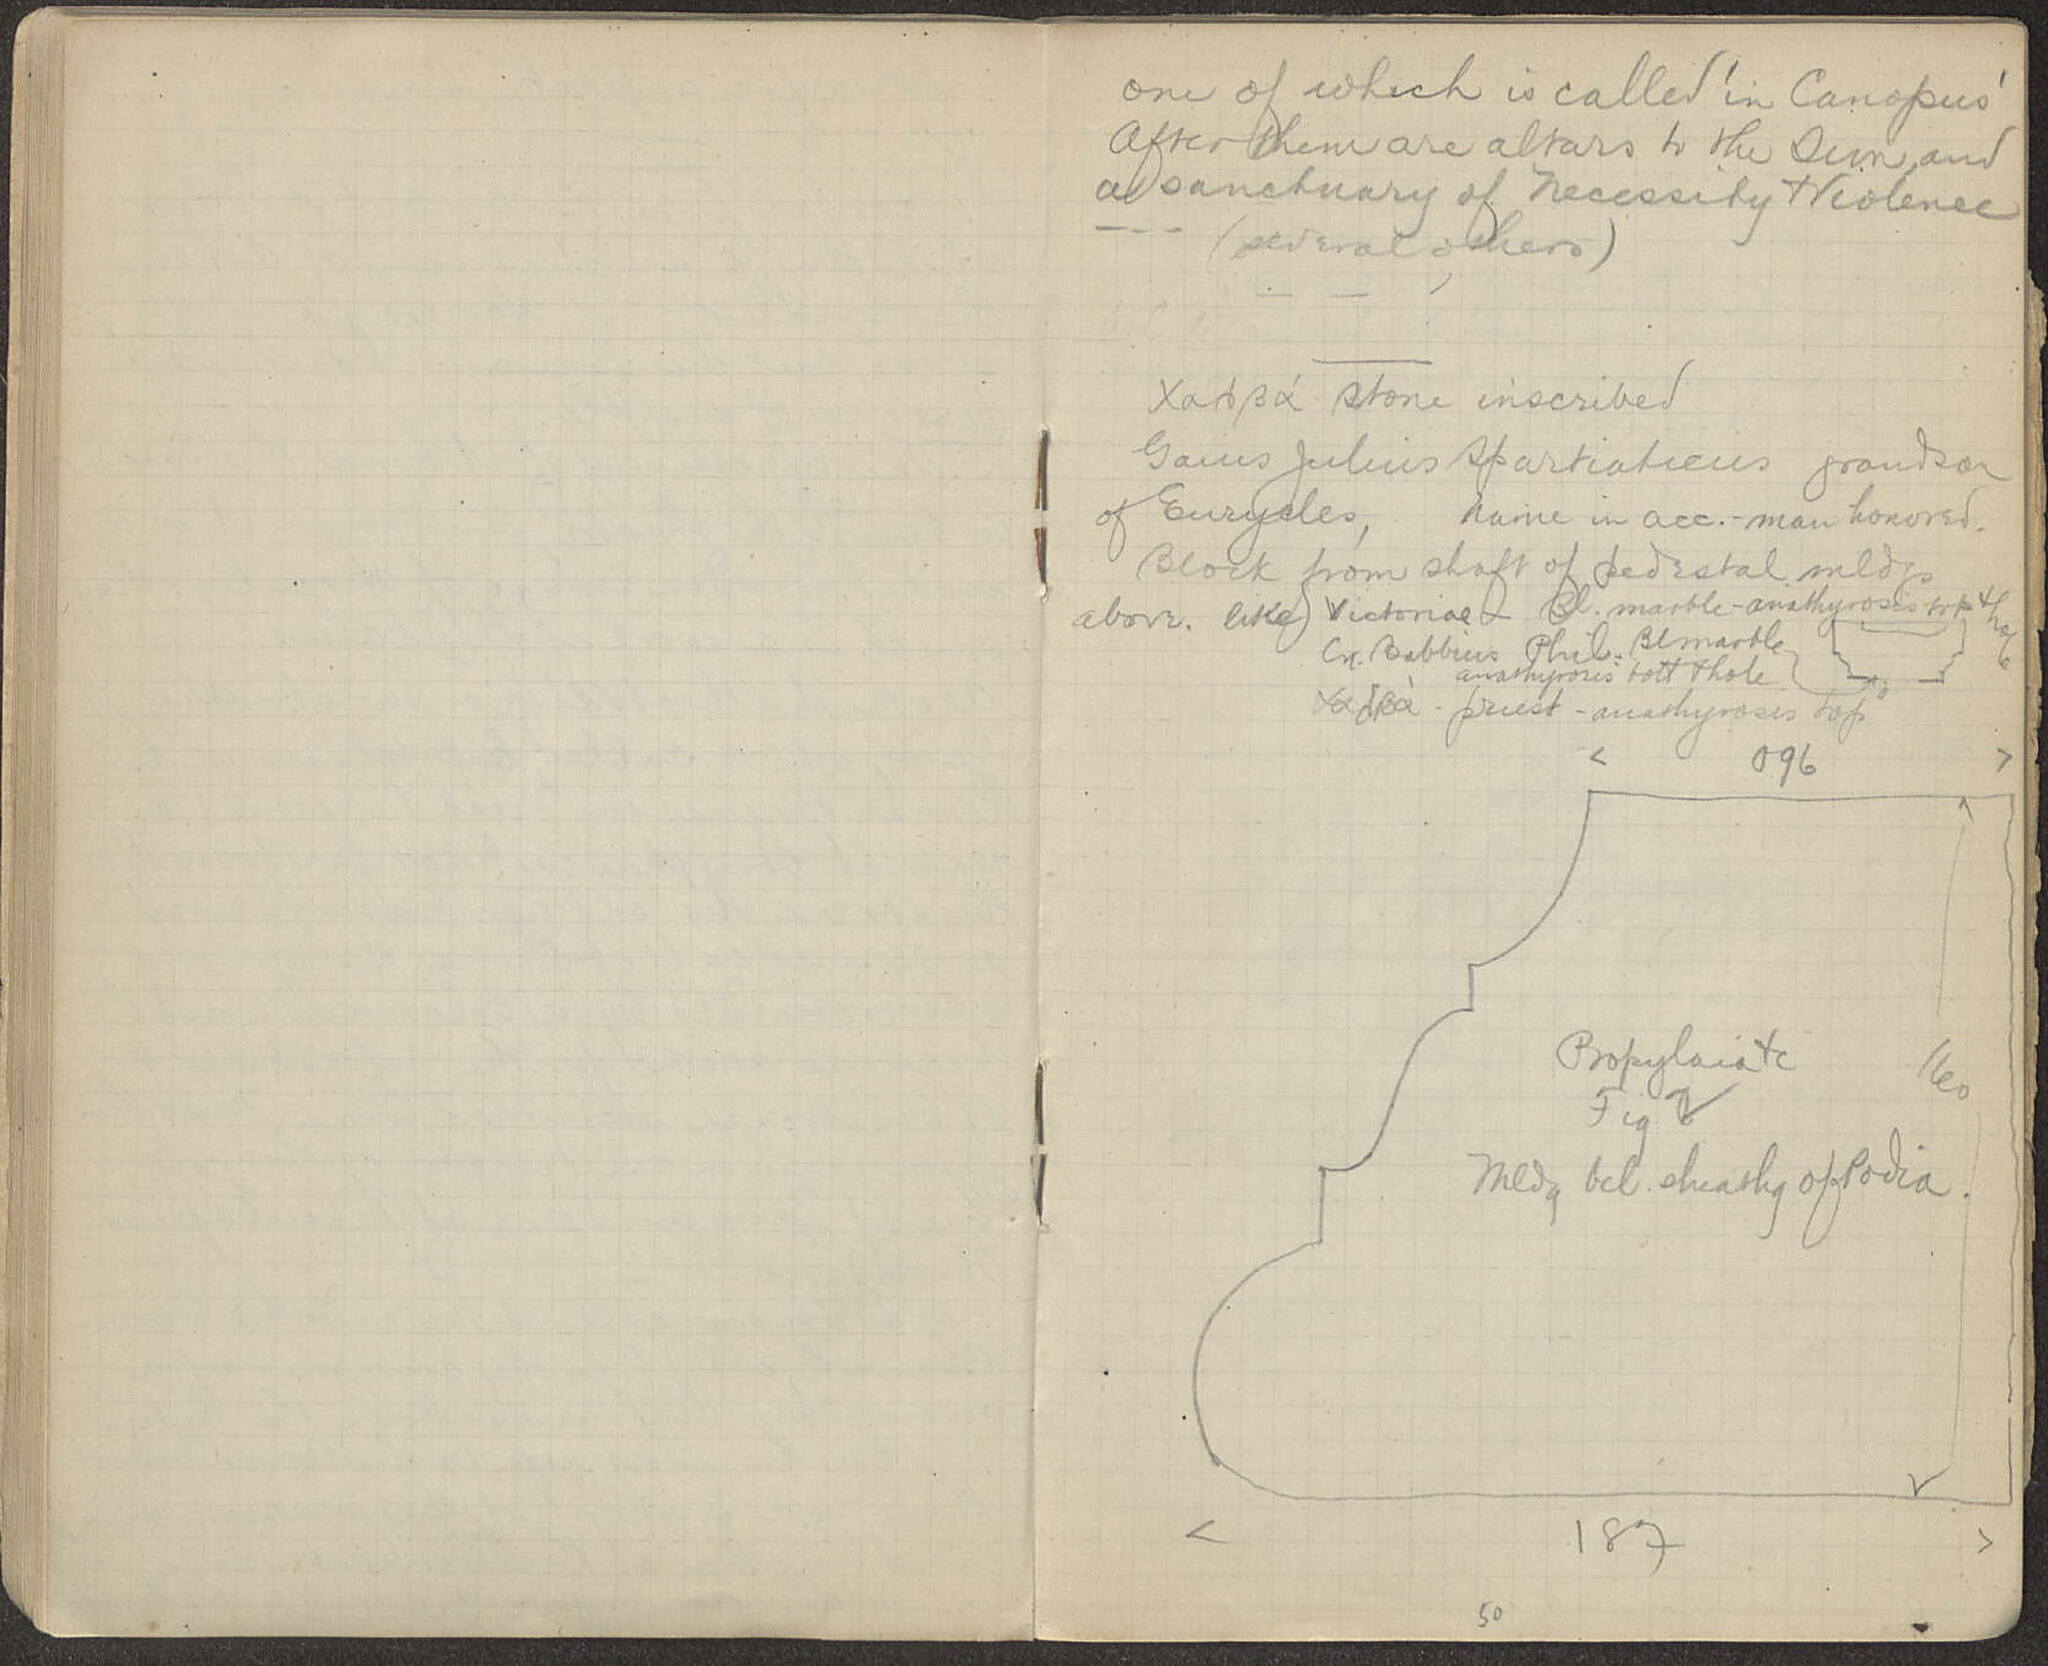 one of which is called 'in Canopus'
After them are altars to the Sun, and
a sanctuary of Necessity + Violence
--- (several others)
Χαβρά stone inscribed
Gaius Julius Spartiaticus grandson
of Eurycles, name in acc.-man honored.
Block from shaft of pedestal. mldgs
above. like Victoriae - Bl. marble-anathyrosis top + hole
Cn. Babbius Phil. Bl marble
anathyrosis bott + hole
priest - anathyrosis top
096
Propylaia tc
Fig
160
Mldg bel. sheathg of Podia.
187
50